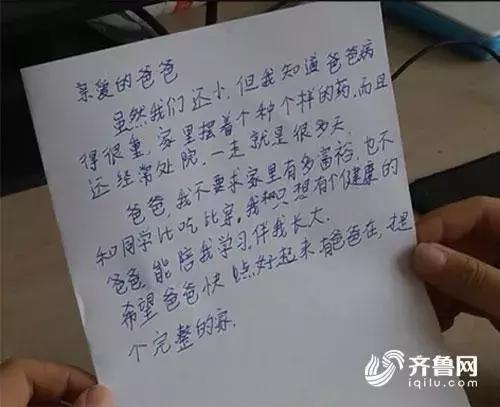 亲爱的爸爸
虽然我们还小,但我知道爸爸病
得很重,家里摆着个种个样的药,而且
还经常处院,一走就是很多天.
爸爸,我不要求家里有多富裕,也不
和同学比吃比穿,我只想有个健康的
爸爸,能陪我学习伴我长大.
希望爸爸快点好起来,有爸爸在,
个完整的家.
齐鲁网
iqilu.com